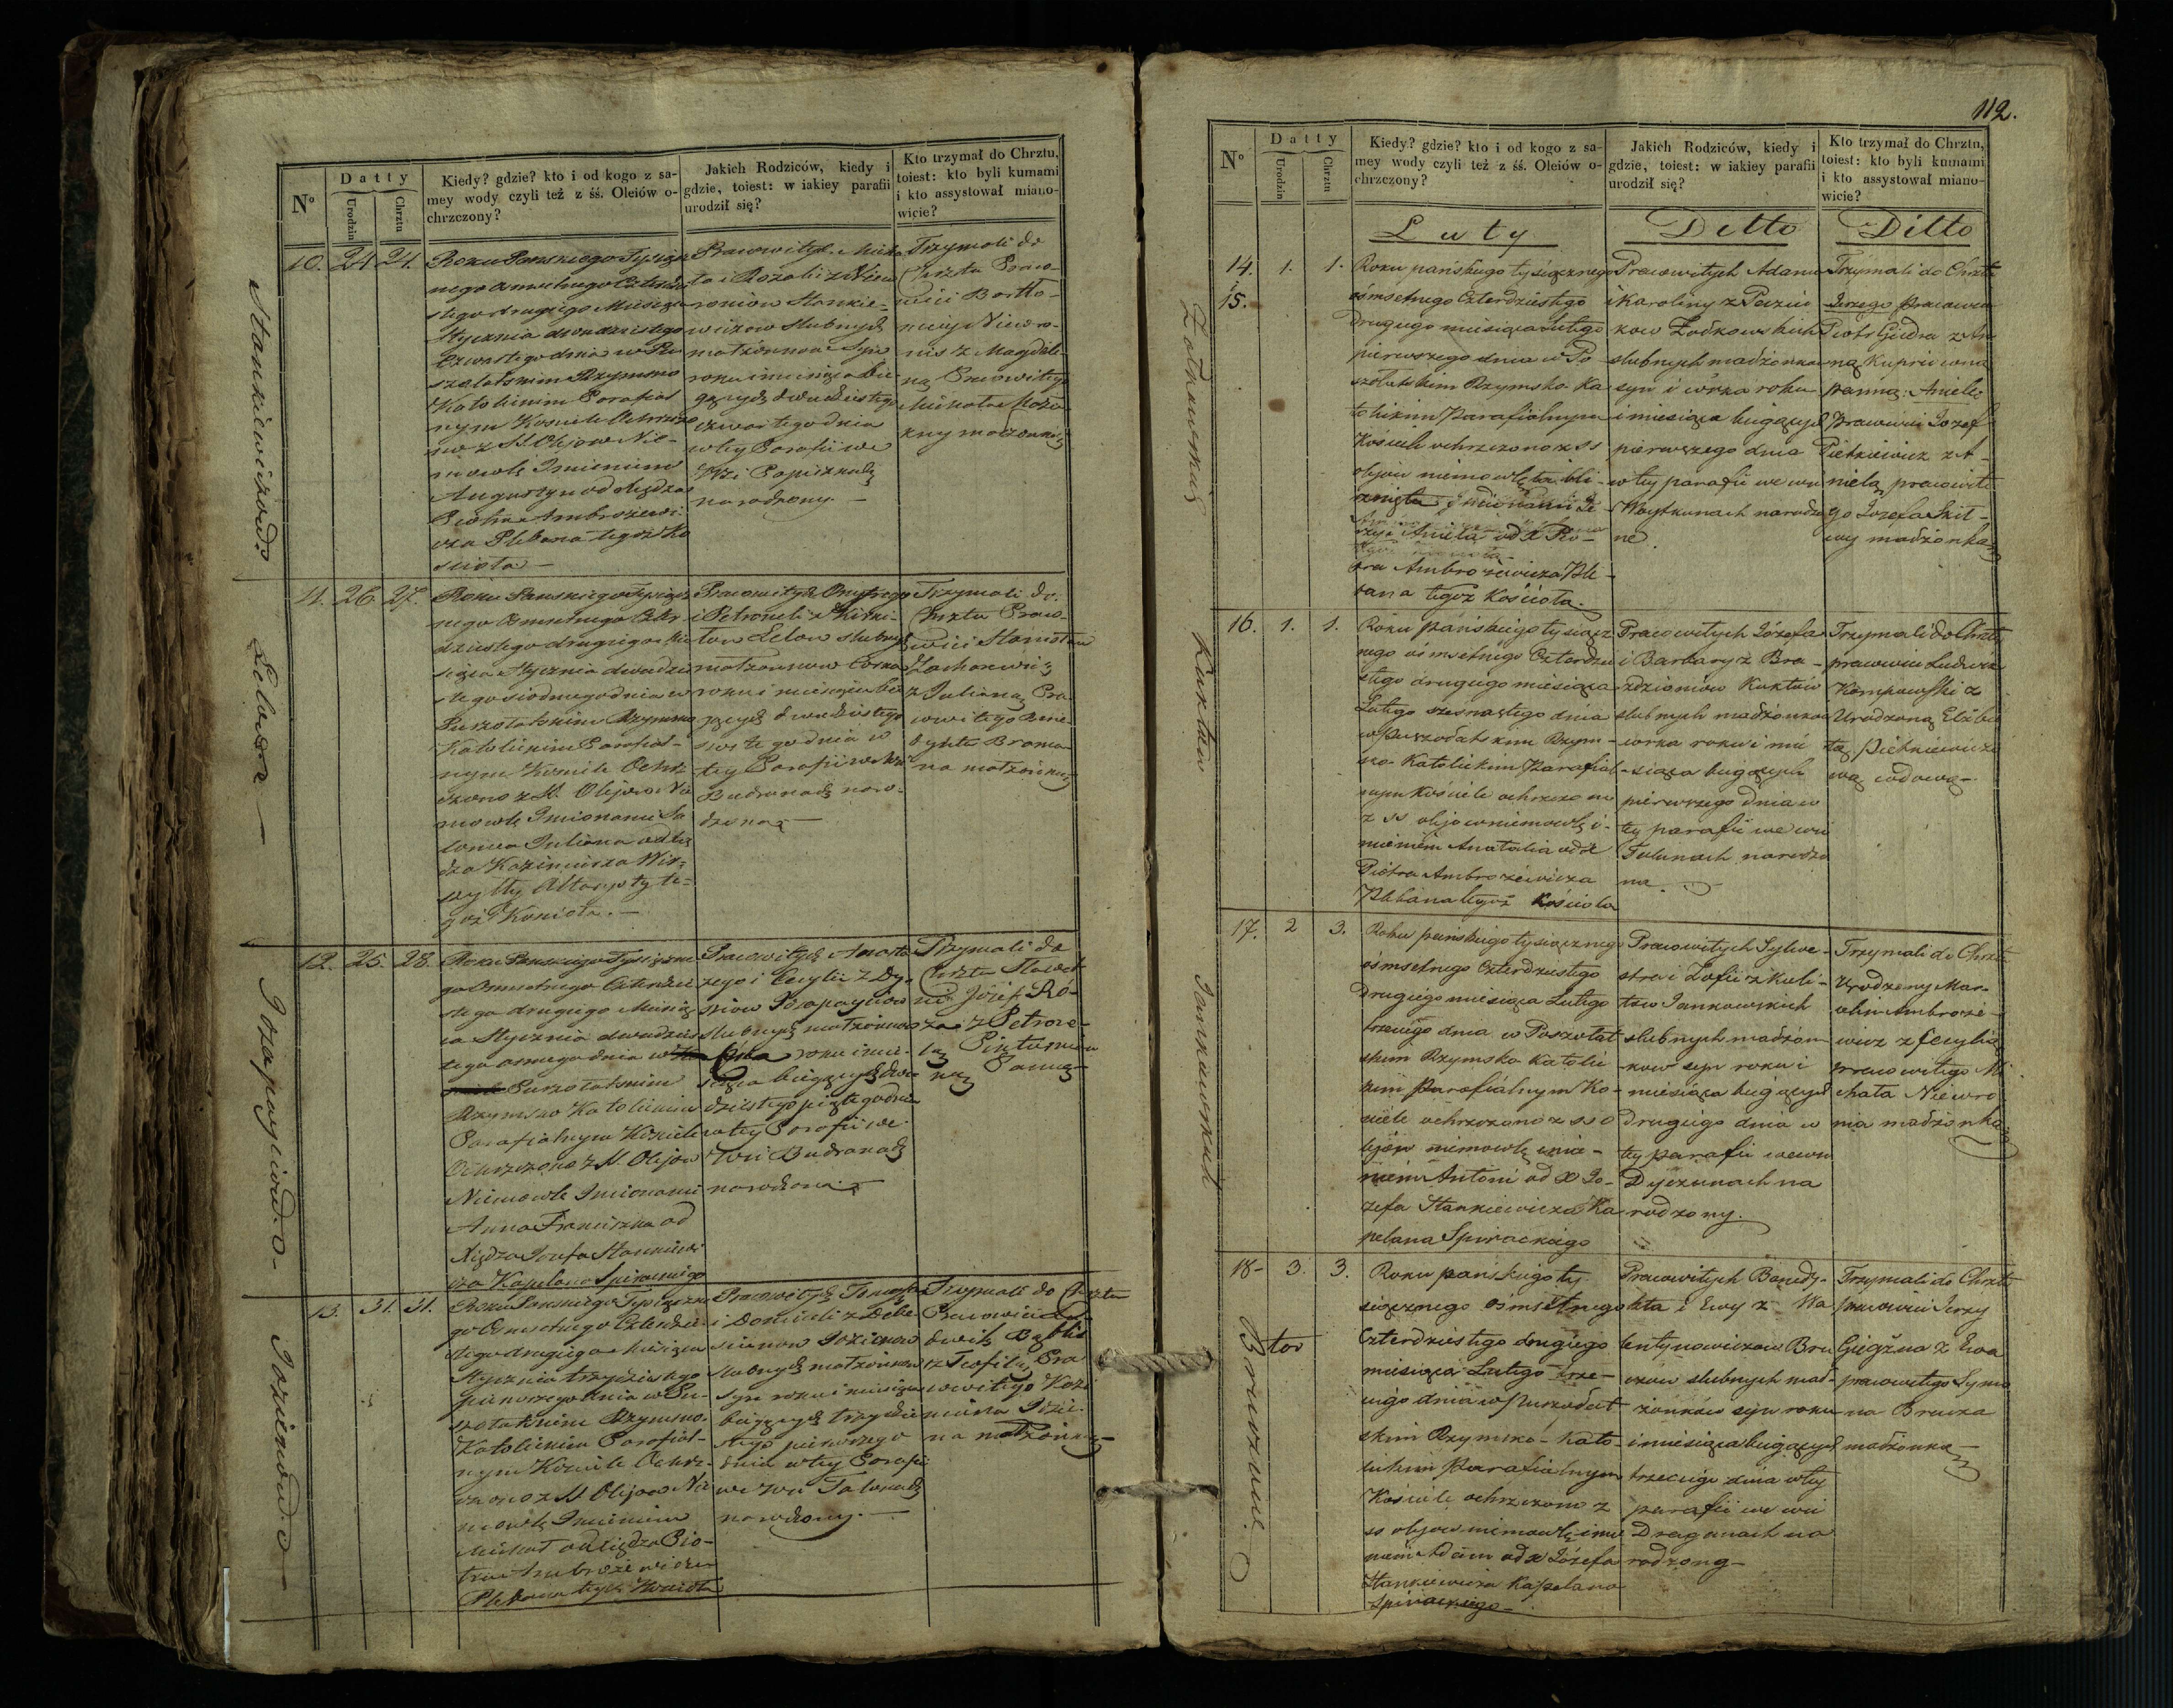 Nº
Datty
Urodzin
Chrztu
Kiedy? gdzie? kto i od kogo z sa-
mey wody czyli też z śś. Oleiów o-
chrzczony?
Jakich Rodziców, kiedy i
gdzie, toiest: w iakiey parafii
urodził się?
Kto trzymał do Chrztu,
toiest: kto byli kumami
i kto assystował miano-
wicie?
10. 24 24.
Roku Panskiego Tysiącz
nego Osmsetnego Czterdzie
stego drugiego Miesiąca
Stycznia dwudziestego
Czwartego dnia w Pu
szołatskim Rzymsko
Katolickim Parafial
nym Kosciele Ochrzczo
no z SS. Olejow Nie-
mowle Imieniem
Augustyn od Xiędza
Piotra Ambrożewi
cza Plebana tegoż Ko
scioła —
Pracowitych Micha
ła i Rozalii z Niew
roniow Stankie-
wiczow Slubnych
małżonkow Syn
roku i miesiąca bie
gących dwudziestego
czwartego dnia
w tey Parafii we
Wsi Papiszkach
narodzony —
Trzymali do
Chrztu Praco-
wici Bartło-
miey Niewro-
nis z Magdale-
ną Pracowitego
Michała
małżonką
Stankiewiczowo
11. 26. 27.
Roku Panskiego Tysiącz
nego Osmsetnego Czter
dziestego drugiego Mie
siąca Stycznia dwudzie
stego siodmego dnia w
Puszołatskim Rzymsko
Katolickim Parafial-
nym Kosciele Ochrz
czono z SS. Olejow Nie
mowle Imionami Sa
lomea Juliana od Xię
dza Kazimierza Wir-
Altarysty te-
goż Koscioła. —
Pracowitych Onufrego
i Petroneli z
tow Lelow slubnych
małżonkow Corka
roku i miesiąca bie
gących dwudziestego
szostego dnia w
tey Parafii we Wsi
Budranach naro-
dzona —
Trzymali do
Chrztu Praco-
wici Stanisław
Zacharewicz
z Julianą Pra
cowitego Bene-
dykta
na małżonką
Lelowna —
12. 25. 28.
Roku Panskiego Tysiączne
go Osmsetnego Czterdzie
stego drugiego Miesią
ca Stycznia dwudzies
tego osmego dnia w
Puszołatskim
Rzymsko Katolickim
Parafialnym Kosciele
Ochrzczono z SS. Olejow
Niemowle Imionami
Anna Franciszka od
Xiędza Jozefa Stankiewi
cza Kapelana Spirackiego
Pracowitych Anasta
zego i Cecylii z Dy-
sniow
slubnych małżonkow
Corka roku i mie-
siąca biegących dwu
dziestego piątego dnia
w tey Parafii we
Wsi Budranach
narodzona —
Trzymali do
Chrztu
Józef Ró-
za z Petrone-
lą
Panną
13. 31. 31.
Roku Panskiego Tysiączne
go Osmsetnego Czterdzie
stego drugiego Miesiąca
Stycznia trzydziestego
pierwszego dnia w Pu-
szołatskim Rzymsko
Katolickim Parafial-
nym Kosciele Ochrz-
czono z SS. Olejow Nie
mowle Imieniem
Michał od Xiędza Pio-
tra Ambrożewicza
Plebana tegoż Koscioła
Pracowitych
i Domiceli z
slubnych małżonkow
Syn roku i miesiąca
biegących trzydzie
stego pierwszego
dnia w tey Parafii
we Wsi Talunach
narodzony. —
Trzymali do Chrztu
Pracowici Lu-
dwik
z Teofilą Pra
cowitego Kazi
mierza
na małżonką —
112.
Nº
Datty
Urodzin
Chrztu
Kiedy? gdzie? kto i od kogo z sa-
mey wody czyli też z śś. Oleiów o-
chrzczony?
Jakich Rodziców, kiedy i
gdzie, toiest: w iakiey parafii
urodził się?
Kto trzymał do Chrztu,
toiest: kto byli kumami
i kto assystował miano-
wicie?
Luty
Ditto
Ditto
14. 1. 1.
i
15.
Roku pańskiego tysiącznego
ośmsetnego Czterdziestego
drugiego miesiąca Lutego
pierwszego dnia w Po
szołatskim Rzymsko Ka
tolickim Parafialnym
Kościele ochrzczono z SS
olejow niemowlęta bli-
znięta Imionami Je-
rzy i Aniela od X Pio-
tra Ambrożewicza Ple-
bana tegoż Kościoła.
Pracowitych Adama
i Karoliny z Paziu
kow Żołkowskich
slubnych madżonkow
syn i córka roku
i miesiąca biegących
pierwszego dnia
w tey parafii we wsi
Woytkunach narodzo
ne.
Trzymali do Chrztu
Jerzego pracowici
Piotr Giedra z An
ną Kupriewną
panną: Anielę
Pracowici Jozef
Pietkiewicz z A-
nielą pracowite
go Jozefa Skit-
wy madżonką
Żołkowskich
16. 1. 1.
Roku pańskiego tysiącz
nego ośmsetnego Czterdzie
stego drugiego miesiąca
Lutego szesnastego dnia
w Puszołatskim Rzym-
sko Katolickim Parafial-
nym Kościele ochrzczono
z SS olejow niemowlę i-
mieniem Anatolia od X
Piotra Ambrożewicza
Plebana tegoż Kościoła
Pracowitych Józefa
i Barbary z Bra-
zdzioniow Kuktow
slubnych madżonkow
corka roku i mie
siąca biegących
pierwszego dnia w
tey parafii we wsi
Talunach narodzo
na.
Trzymali do Chrztu
pracowici Ludwik
Kompowski z
Urodzoną Elżbie
tą Pietkiewiczo
wą wdową.
Kuktow
17. 2 3.
Roku pańskiego tysiącznego
ośmsetnego Czterdziestego
drugiego miesiąca Lutego
trzeciego dnia w Poszołat
skim Rzymsko Katolic
kim Parafialnym Ko-
ściele ochrzczono z SS o
lejów niemowlę imie-
niem Antoni od X Jo-
zefa Stankiewicza Ka
pelana Spirackiego
Pracowitych Sylwe-
stra i Zofii z Kuli-
tow Jankowskich
slubnych madżon
kow syn roku i
miesiąca biegących
drugiego dnia w
tey parafii we wsi
Dyczunach na
rodzony.
Trzymali do Chrztu
Urodzony Mar-
celin Ambroże-
wicz z Cecylią
pracowitego Mi
chała Niewro
nia madżonką
Jankowskich
18- 3. 3.
Roku pańskiego ty
siącznego ośmsetnego
Czterdziestego drugiego
miesiąca Lutego trze-
ciego dnia w Puszołat
skim Rzymsko-Kato-
lickim Parafialnym
Kościele ochrzczono z
SS olejow niemowlę imie
niem Adam od X Józefa
Stankiewicza Kapelana
Spirackiego —
Pracowitych Benedy-
kta i Ewy z Wa
lentynowiczow Bru
czow slubnych mad-
żonków syn roku
i miesiąca biegących
trzeciego dnia w tey
parafii we wsi
Draganach na
rodzony —
Trzymali do Chrztu
pracowici Jerzy
z Ewą
pracowitego Symo
na Brucza
madżonką —